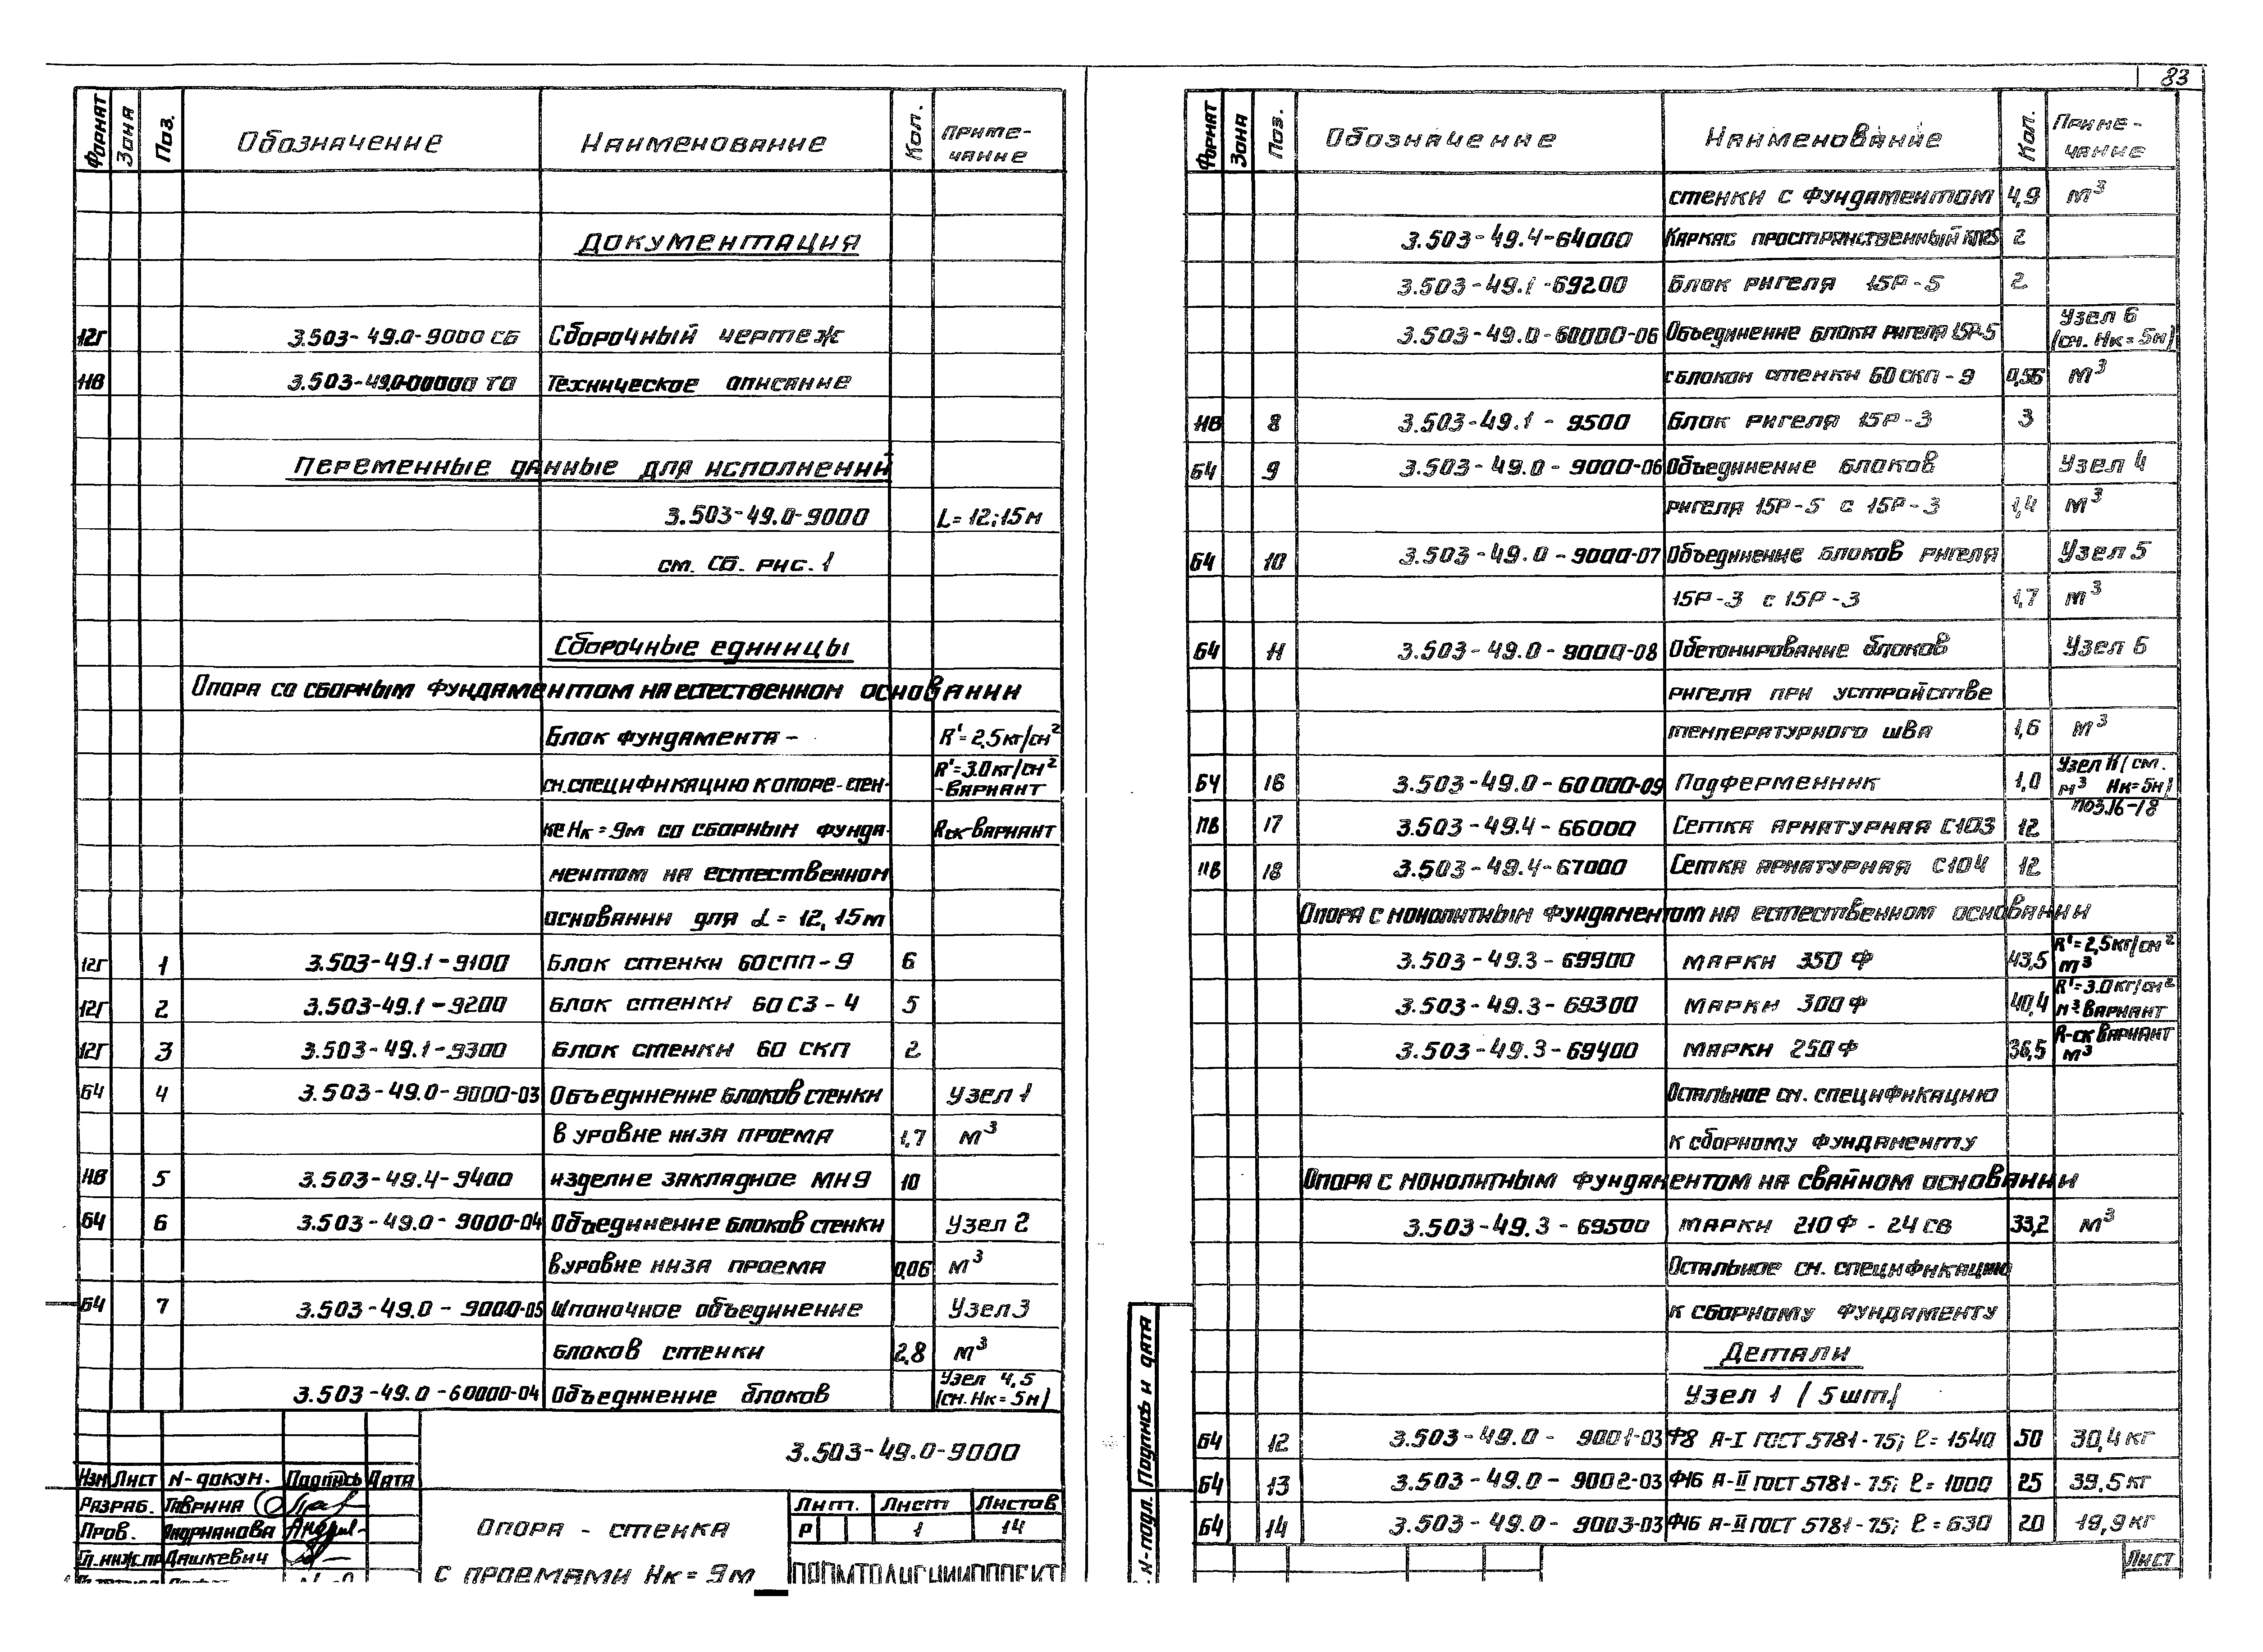 83
Формат Зона Поз. Обозначение Наименование Кол. Приме-
чание
Документация
12Г 3.503-49.0-9000 СБ Сборочный чертеж
11В 3.503-49.0-00000 ТО Техническое описание
Переменные данные для исполнений
3.503-49.0-9000 L=12;15м
см. СБ. рис. 1
Сборочные единицы
Опора со сборным фундаментом на естественном основании
Блок фундамента - R'=2,5кг/см²
см. спецификацию к опоре-стен- R'=3.0кг/см²
-вариант
ке Нк=9м со сборным фунда- Rск-вариант
ментом на естественном
основании для L=12, 15м
12Г 1 3.503-49.1-9100 Блок стенки 60СПП-9 6
12Г 2 3.503-49.1-9200 Блок стенки 60С3-4 5
12Г 3 3.503-49.1-9300 Блок стенки 60 СКП 2
БЧ 4 3.503-49.0-9000-03 Объединение блоков стенки Узел 1
в уровне низа проема 1,7 м³
11В 5 3.503-49.4-9400 изделие закладное МН9 10
БЧ 6 3.503-49.0-9000-04 Объединение блоков стенки Узел 2
в уровне низа проема 0,06 м³
БЧ 7 3.503-49.0-9000-05 Шпоночное объединение Узел 3
блоков стенки 2,8 м³
3.503-49.0-60000-04 Объединение блоков Узел 4,5
(см. Нк=5м)
3.503-49.0-9000
Изм Лист N-докум. Подпись Дата
Разраб. Гаврина
Пров. Андрианова
Гл.инж.пр Дашкевич
Опора - стенка
с проемами Нк=9м
Лит. Лист Листов
Р 1 14
Формат Зона Поз. Обозначение Наименование Кол. Приме-
чание
стенки с фундаментом 4,9 м³
3.503-49.4-64000 Каркас пространственный КП25 2
3.503-49.1-69200 Блок ригеля 15Р-5 2
3.503-49.0-60000-06 Объединение блока ригеля 15Р-5 Узел 6
(см. Нк=5м)
с блоком стенки 60СКП-9 0,56 м³
11В 8 3.503-49.1-9500 Блок ригеля 15Р-3 3
БЧ 9 3.503-49.0-9000-06 Объединение блоков Узел 4
ригеля 15Р-5 с 15Р-3 1,4 м³
БЧ 10 3.503-49.0-9000-07 Объединение блоков ригеля Узел 5
15Р-3 с 15Р-3 1,7 м³
БЧ 11 3.503-49.0-9000-08 Обетонирование блоков Узел 6
ригеля при устройстве
температурного шва 1,6 м³
БЧ 16 3.503-49.0-60000-09 Подферменник 1,0 Узел К(см.
м³ Нк=5м)
поз.16-18
11В 17 3.503-49.4-66000 Сетка арматурная С103 12
11В 18 3.503-49.4-67000 Сетка арматурная С104 12
Опора с монолитным фундаментом на естественном основании
3.503-49.3-69900 марки 350Ф 43,5 R'=2,5кг/см²
м³
3.503-49.3-69300 марки 300Ф 40,4 R'=3.0кг/см²
м³ вариант
3.503-49.3-69400 марки 250Ф 36,5 R-ск вариант
м³
Остальное см. спецификацию
к сборному фундаменту
Опора с монолитным фундаментом на свайном основании
3.503-49.3-69500 марки 210Ф-24св 33,2 м³
Остальное см. спецификацию
к сборному фундаменту
Детали
Узел 1 (5шт.)
БЧ 12 3.503-49.0-9001-03 Ф8 А-I ГОСТ 5781-75; ℓ=1540 50 30,4кг
БЧ 13 3.503-49.0-9002-03 Ф16 А-II ГОСТ 5781-75; ℓ=1000 25 39,5кг
БЧ 14 3.503-49.0-9003-03 Ф16 А-II ГОСТ 5781-75; ℓ=630 20 19,9кг
N-подл. Подпись и дата
Лист